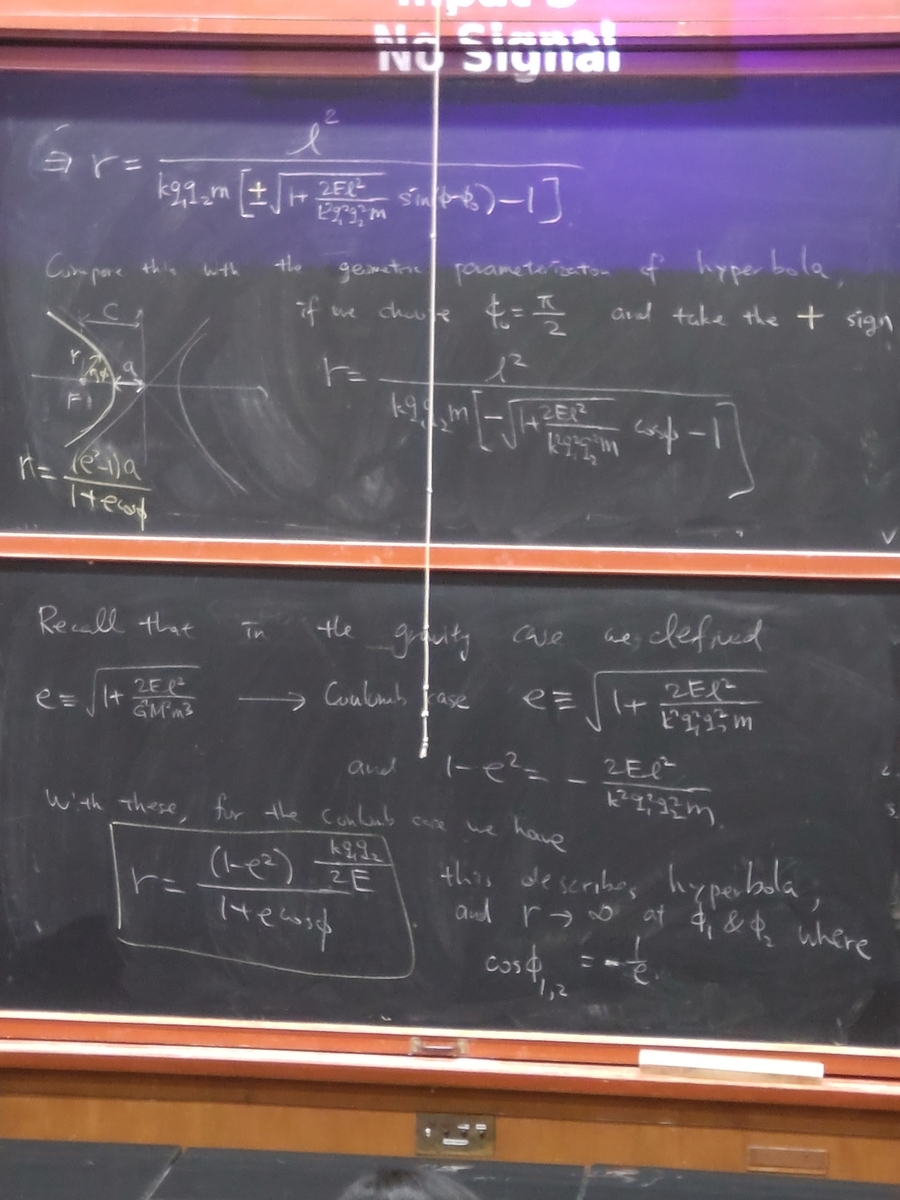 Input 3
No Signal
⇒ r = l² / kq₁q₂m [± √(1 + 2El²/k²q₁²q₂²m) sin(φ-φ₀) - 1]
Compare this with the geometric parameterization of hyperbola,
if we choose φ₀ = π/2 and take the + sign
C
r φ a
F
r = l² / kq₁q₂m [-√(1 + 2El²/k²q₁²q₂²m) cosφ - 1]
r = (e²-1)a / 1+ecosφ
Recall that in the gravity case we defined
e ≡ √(1 + 2El²/G²M²m³) → Coulomb case e ≡ √(1 + 2El²/k²q₁²q₂²m)
and 1-e² = - 2El²/k²q₁²q₂²m
With these, for the coulomb case we have
r = (1-e²) kq₁q₂/2E / 1+ecosφ
this describes hyperbola,
and r → ∞ at φ₁ & φ₂ where
cosφ₁,₂ = -1/e.